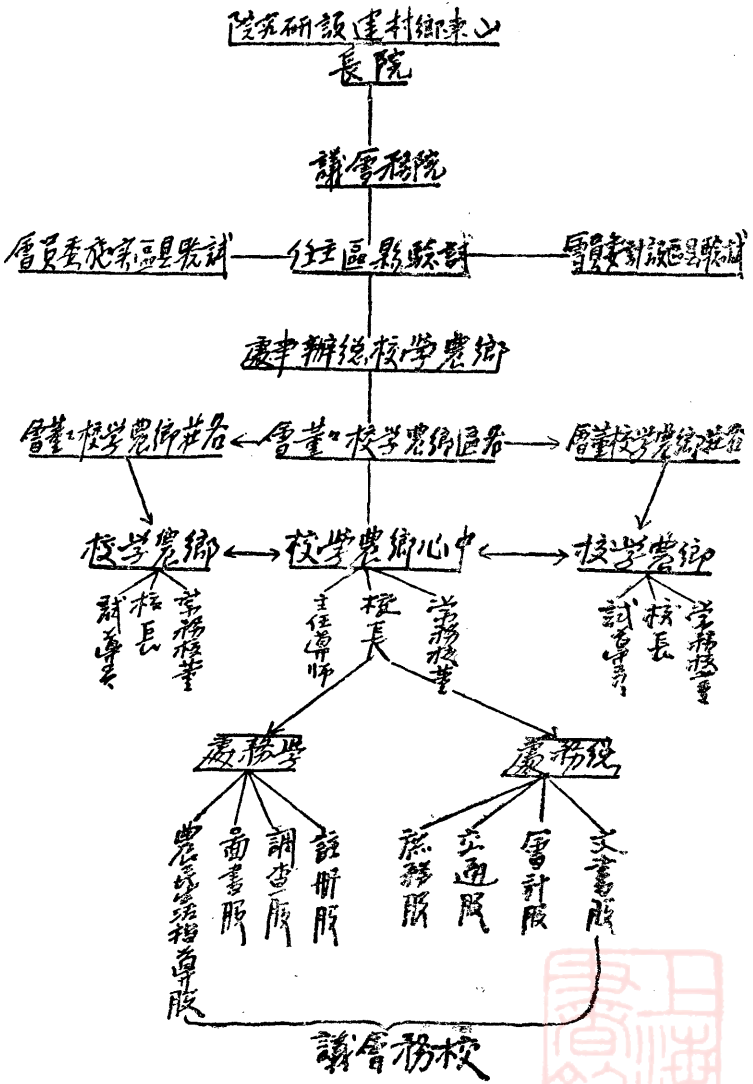 山東鄉村建設研究院
院長
院務會議
試驗县區設計委員會
試驗縣區主任
試驗县區实施委員會
鄉農學校總辦事處
各莊鄉農学校董會
各區鄉農学校〻董會
各莊鄉農学校〻董會
鄉農学校
中心鄉農學校
鄉農学校
常務校董
校長
試導員
常務校董
校長
主任導師
常務校董
校長
試導員
總務處
學務處
文書股
會計股
交通股
庶務股
註册股
調查股
圖書股
農民生活指導股
校務會議
上海